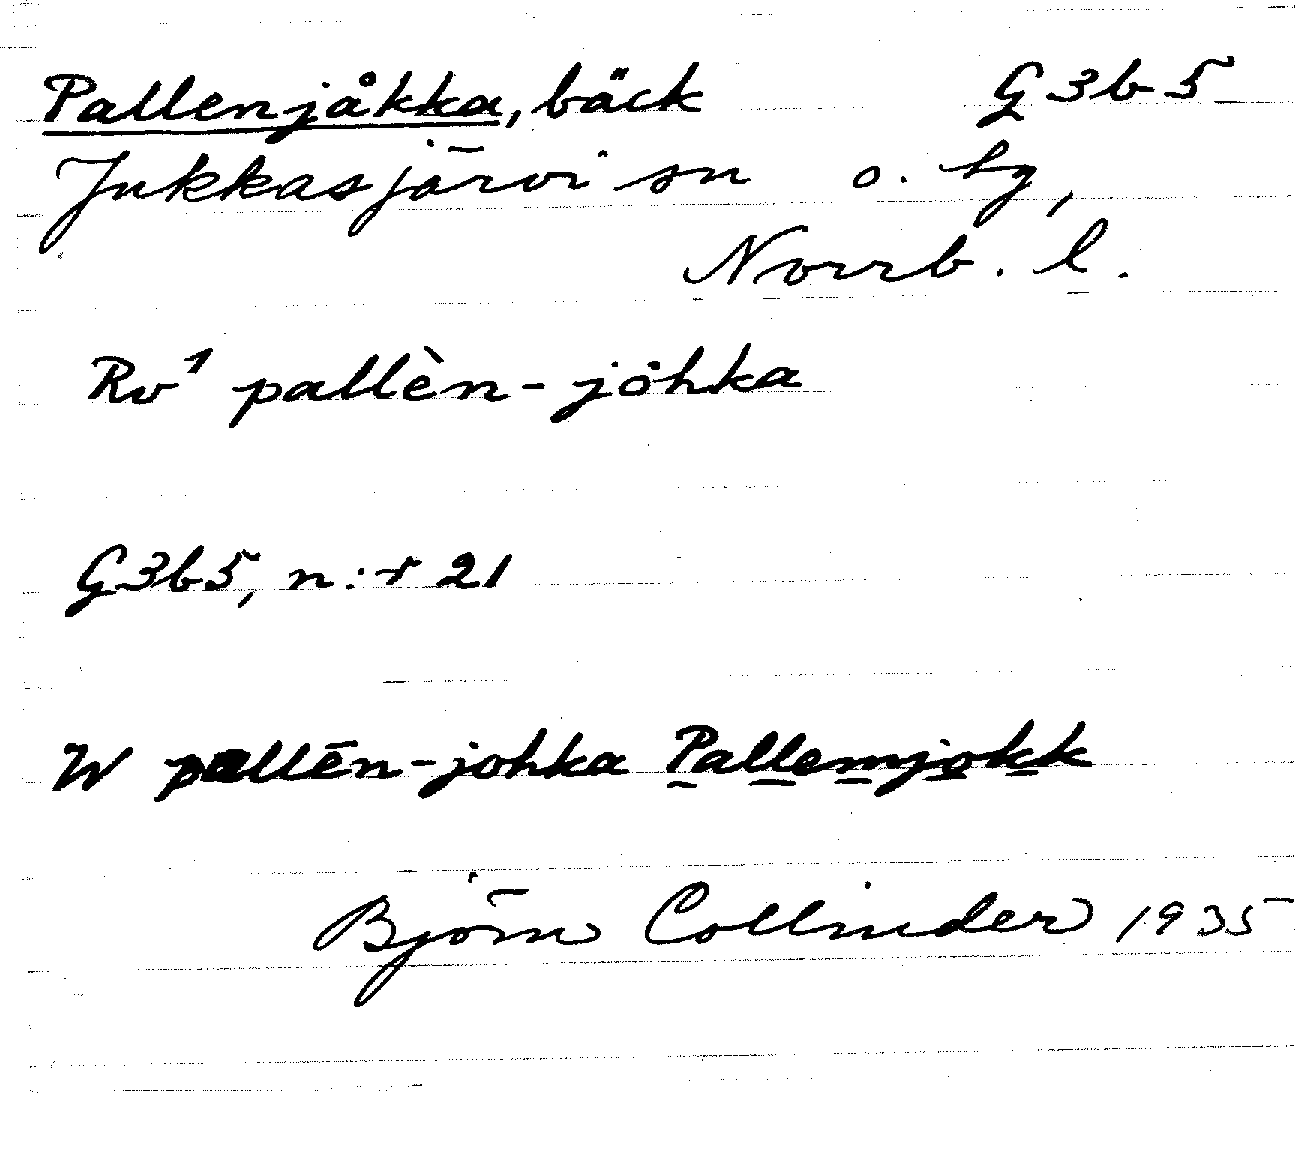 Pallenjåkka, bäck G3b5
Jukkasjärvi sn o. tg,
Norrb. l.
Rv¹ pallèn-jȯhka
G3b5, n:r 21
W pallēn-johka Pallemjokk
Björn Collinder 1935